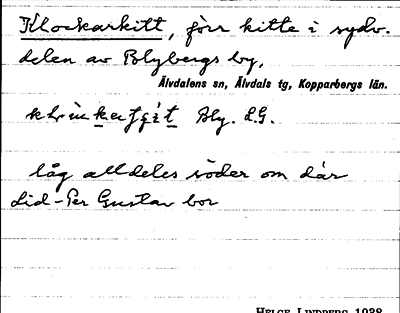 Klockarkitt, förr kitte i sydv.
delen av Blybergs by,
Älvdalens sn, Älvdals tg, Kopparbergs län.
Bly. L.G.
låg alldeles söder om där
Lid-Per Gustav bor
HELGE LINDBERG 1938